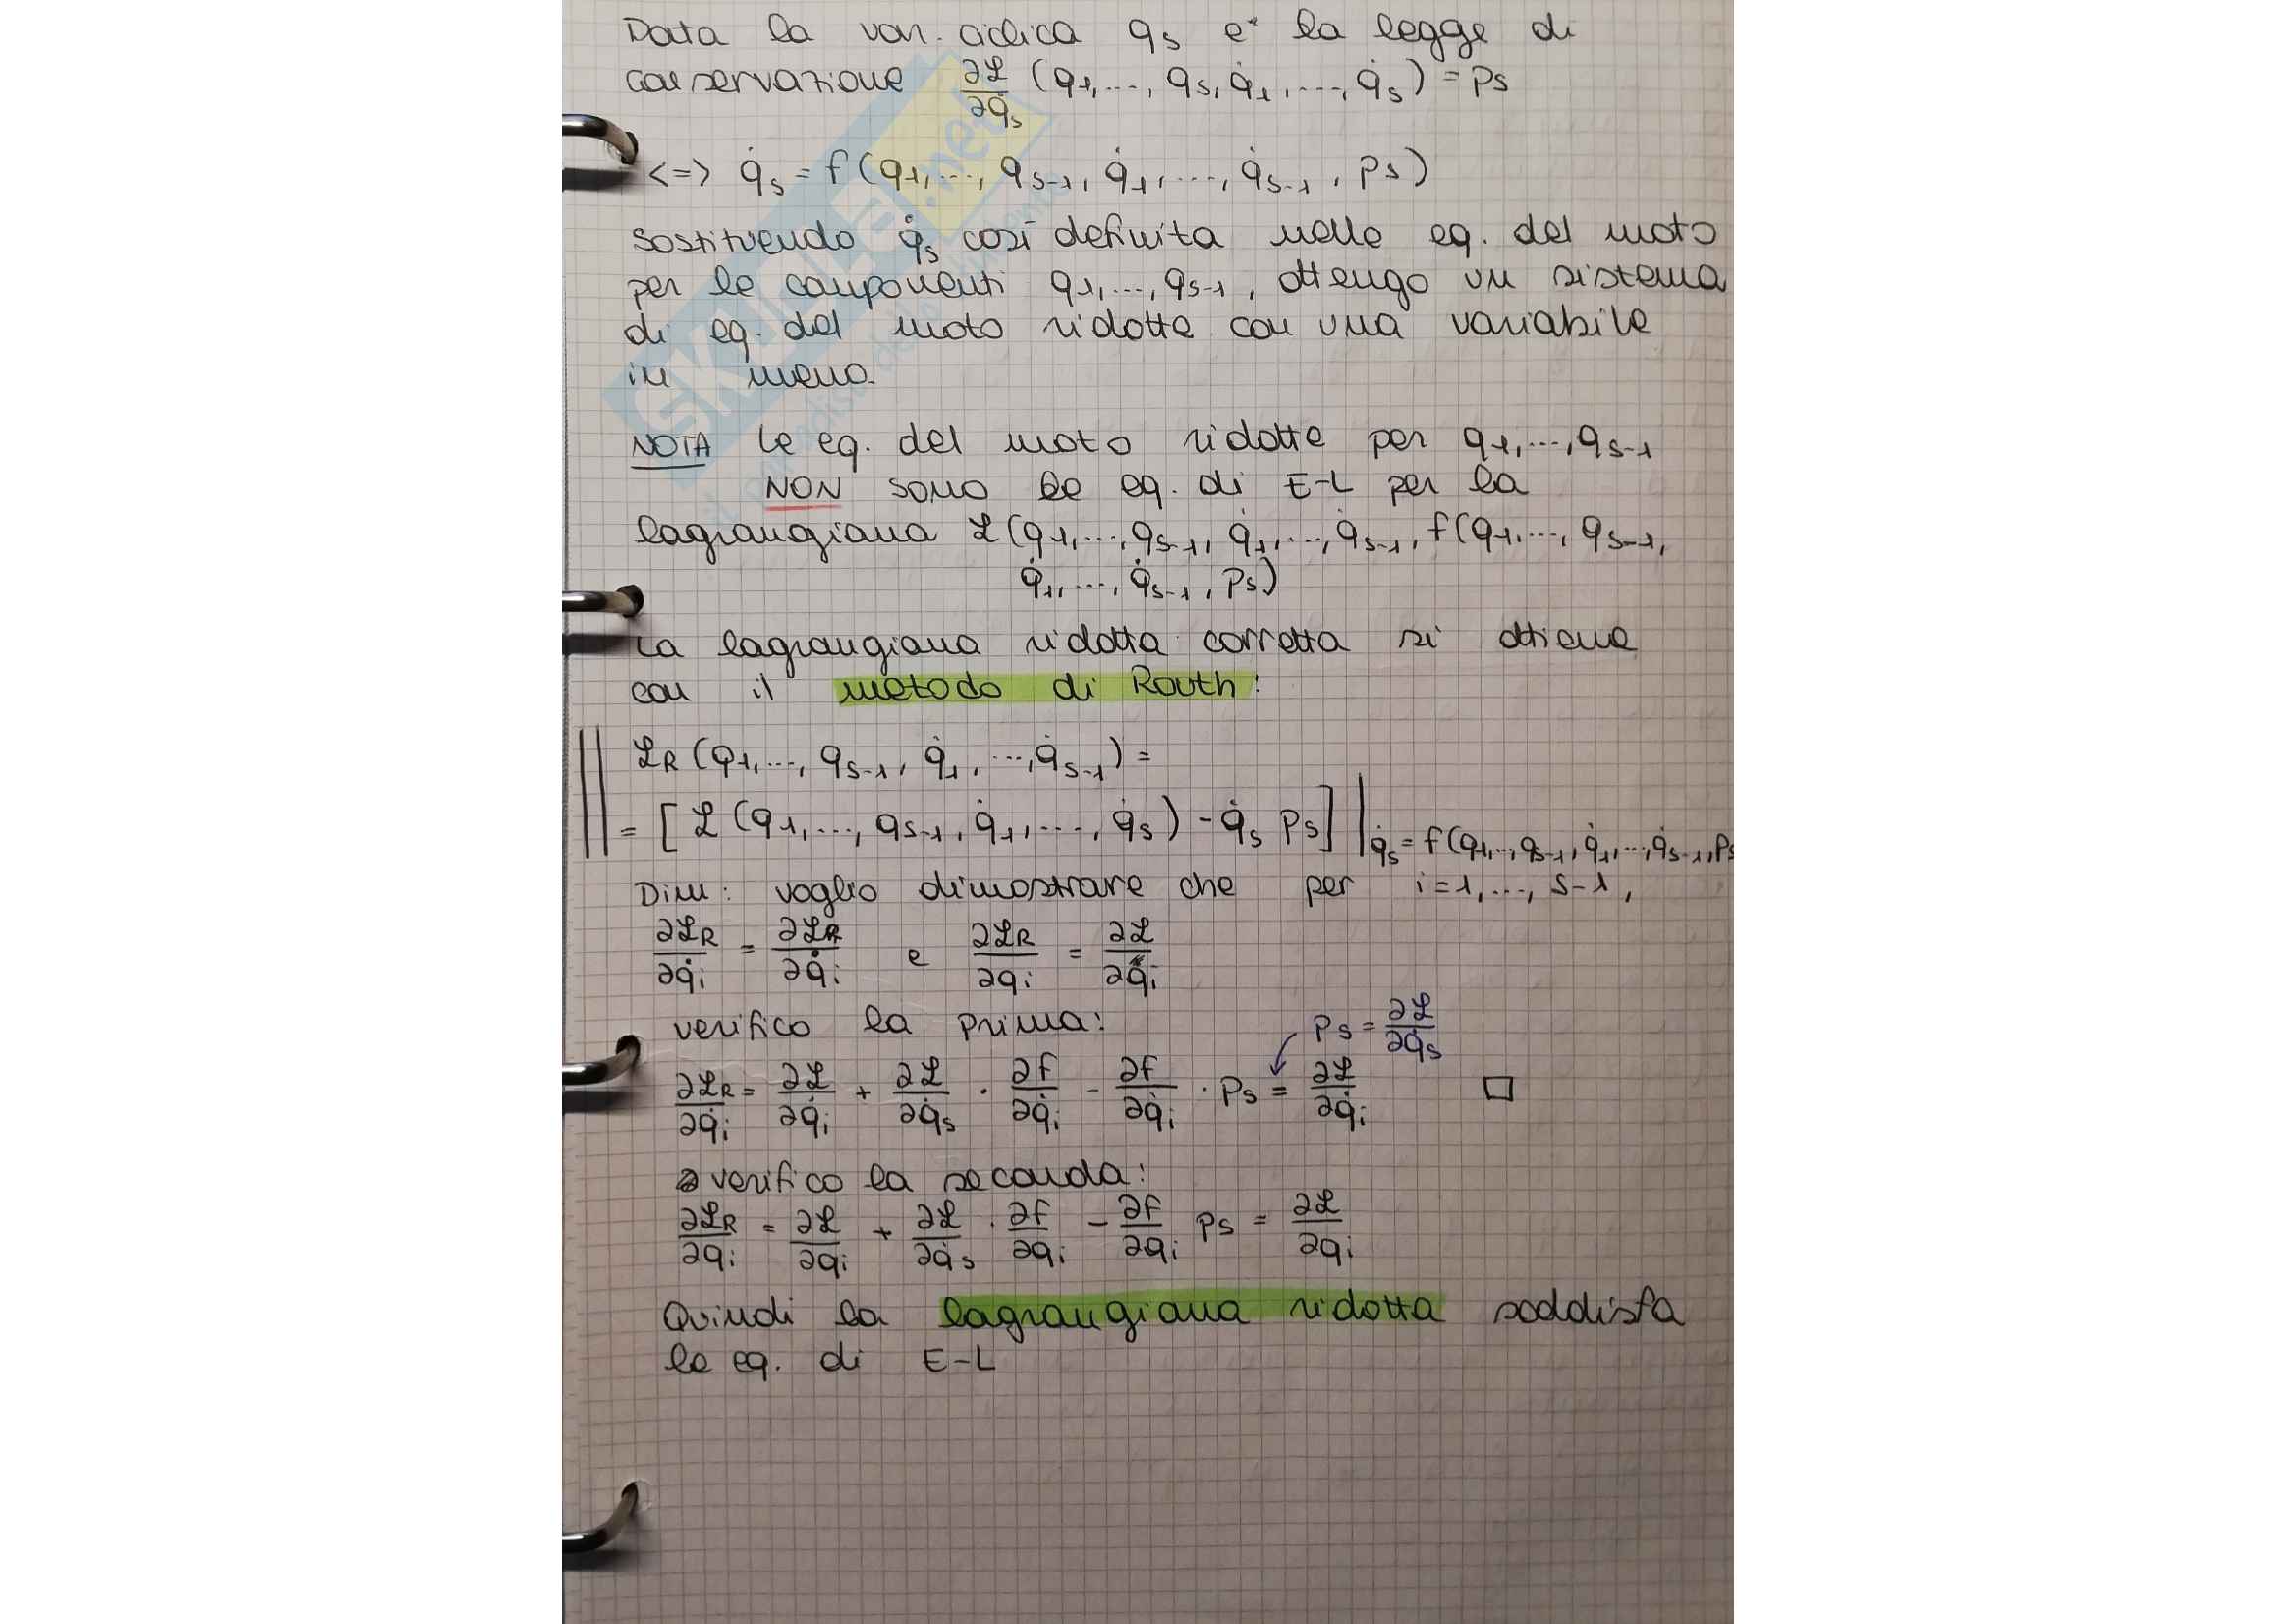 Data la var. ciclica qs e la legge di
conservazione ∂ℒ/∂q̇s (q1,..., qs, q̇1,..., q̇s) = ps
<=> q̇s = f(q1,..., qs-1, q̇1,..., q̇s-1, ps)
sostituendo q̇s così definita nelle eq. del moto
per le componenti q1,..., qs-1, ottengo un sistema
di eq. del moto ridotte con una variabile
in meno.
NOTA le eq. del moto ridotte per q1,..., qs-1
NON sono le eq. di E-L per la
lagrangiana ℒ(q1,..., qs-1, q̇1,..., q̇s-1, f(q1,..., qs-1,
q̇1,..., q̇s-1, ps)
La lagrangiana ridotta corretta si ottiene
con il metodo di Routh:
ℒR (q1,..., qs-1, q̇1,..., q̇s-1) =
= [ℒ(q1,..., qs-1, q̇1,..., q̇s) - q̇s ps] | q̇s = f(q1,..., qs-1, q̇1,..., q̇s-1, ps
Dim: voglio dimostrare che per i=1,..., s-1,
∂ℒR/∂q̇i = ∂ℒ/∂q̇i e ∂ℒR/∂qi = ∂ℒ/∂qi
verifico la prima: ps = ∂ℒ/∂q̇s
∂ℒR/∂q̇i = ∂ℒ/∂q̇i + ∂ℒ/∂q̇s · ∂f/∂q̇i - ∂f/∂q̇i · ps = ∂ℒ/∂q̇i □
verifico la seconda:
∂ℒR/∂qi = ∂ℒ/∂qi + ∂ℒ/∂q̇s · ∂f/∂qi - ∂f/∂qi ps = ∂ℒ/∂qi
Quindi la lagrangiana ridotta soddisfa
le eq. di E-L